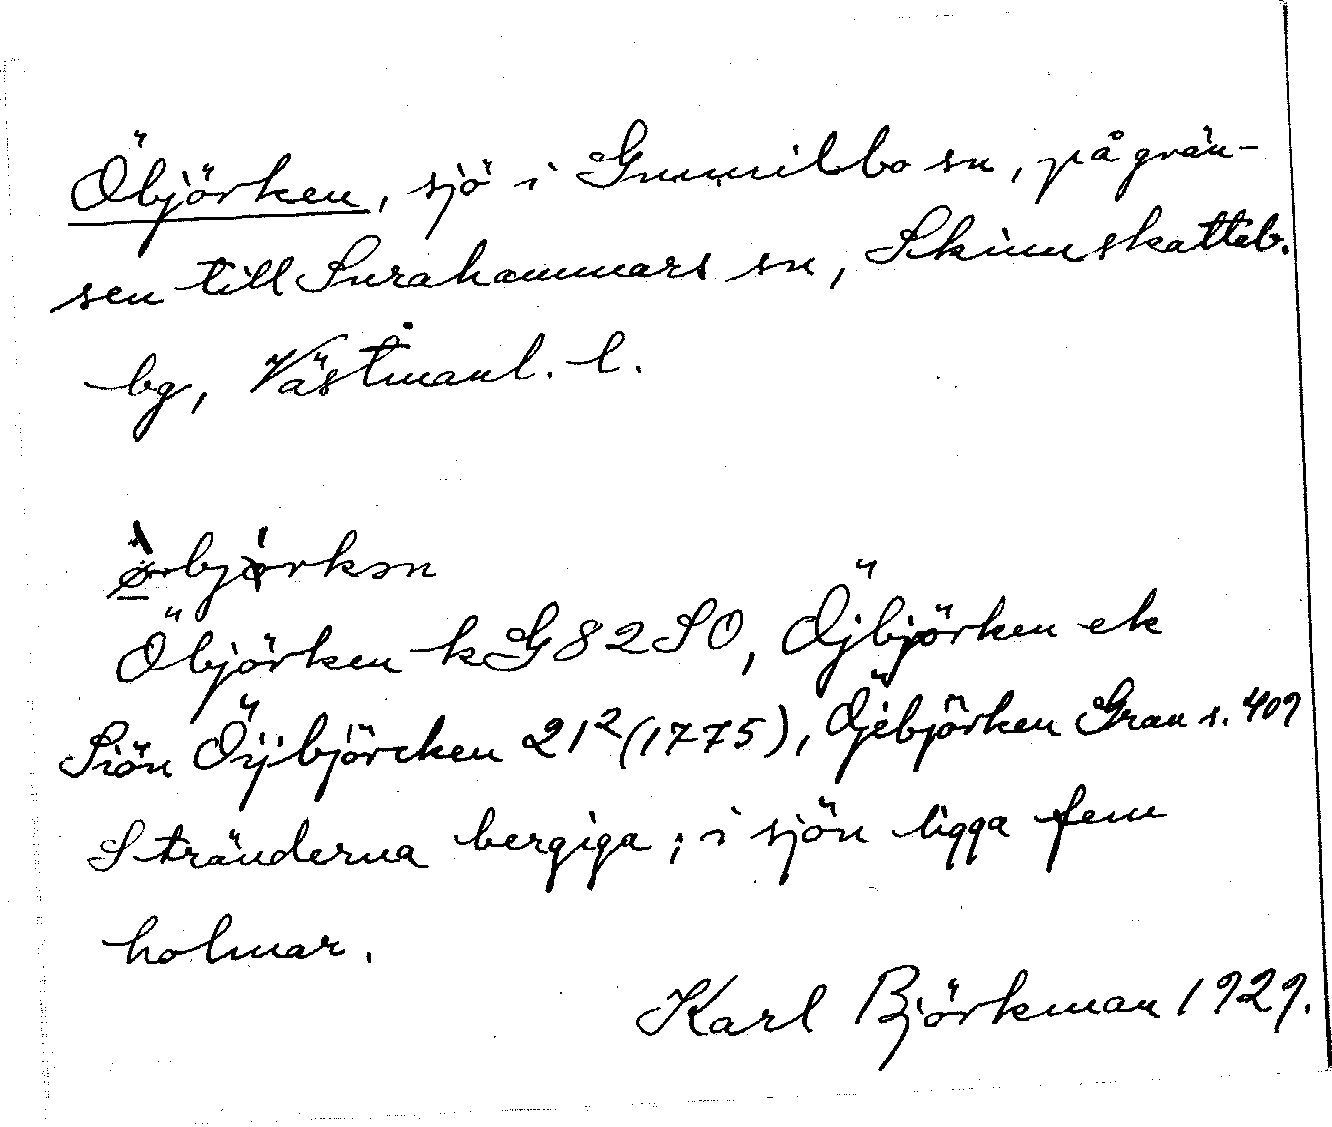 Öbjörken, sjö i Gunnilbo sn, på grän-
sen till Surahammars sn, Skinnskatteb.
bg, Västmanl. l.
ø̀björkən
Öbjörken k G 82 SO, Öjbjörken ek
Siön Öijbjörcken 21² (1775), Öjebjörken Gran s. 409
Stränderna bergiga; i sjön ligga fem
holmar.
Karl Björkman 1929.